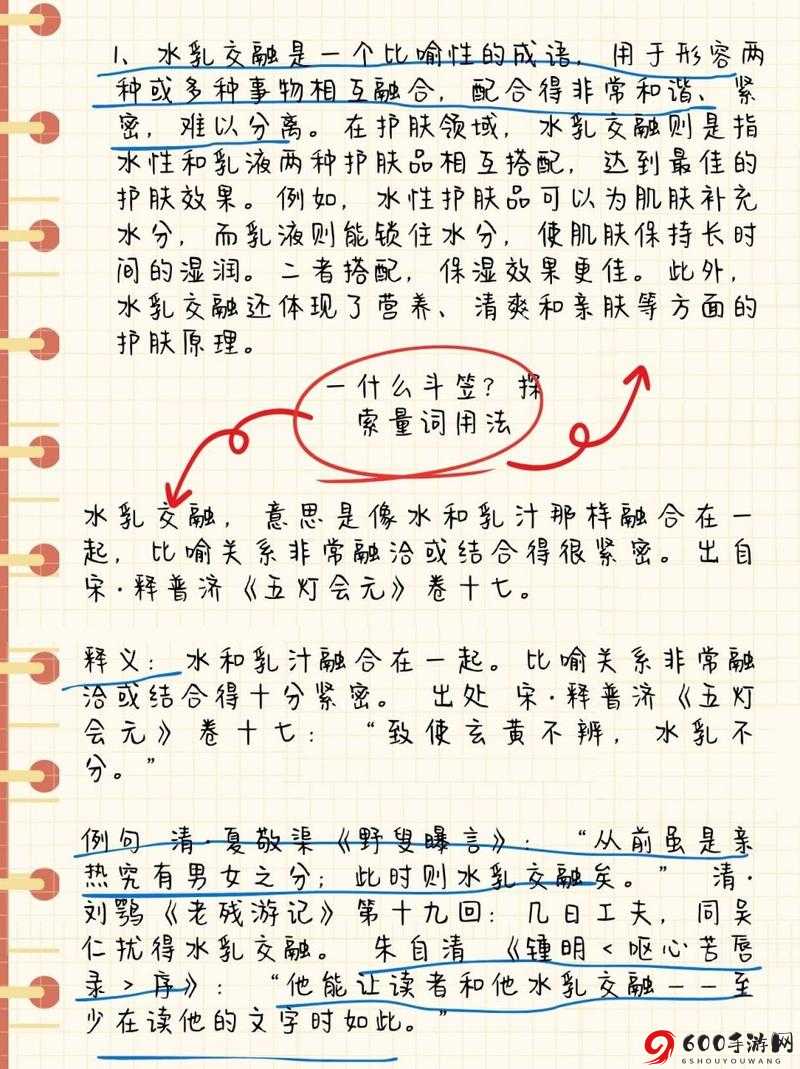 1、水乳交融是一个比喻性的成语，用于形容两
种或多种事物相互融合，配合得非常和谐、紧
密，难以分离。在护肤领域，水乳交融则是指
水性和乳液两种护肤品相互搭配，达到最佳的
护肤效果。例如，水性护肤品可以为肌肤补充
水分，而乳液则能锁住水分，使肌肤保持长时
间的湿润。二者搭配，保湿效果更佳。此外，
水乳交融还体现了营养、清爽和亲肤等方面的
护肤原理。
一什么斗笠？探
索量词用法
水乳交融，意思是像水和乳汁那样融合在一
起，比喻关系非常融洽或结合得很紧密。出自
宋·释普济《五灯会元》卷十七。
释义：水和乳汁融合在一起。比喻关系非常融
洽或结合得十分紧密。 出处 宋·释普济《五灯
会元》卷十七：“致使玄黄不辨，水乳不
分。”
例句 清·夏敬渠《野叟曝言》：“从前虽是亲
热究有男女之分；此时则水乳交融矣。” 清·
刘鹗《老残游记》第十九回：几日工夫，同吴
仁扰得水乳交融。 朱自清 《锺明<呕心苦唇
录>序》：“他能让读者和他水乳交融——至
少在读他的文字时如此。”
600手游网
6SHOUYOUWANG